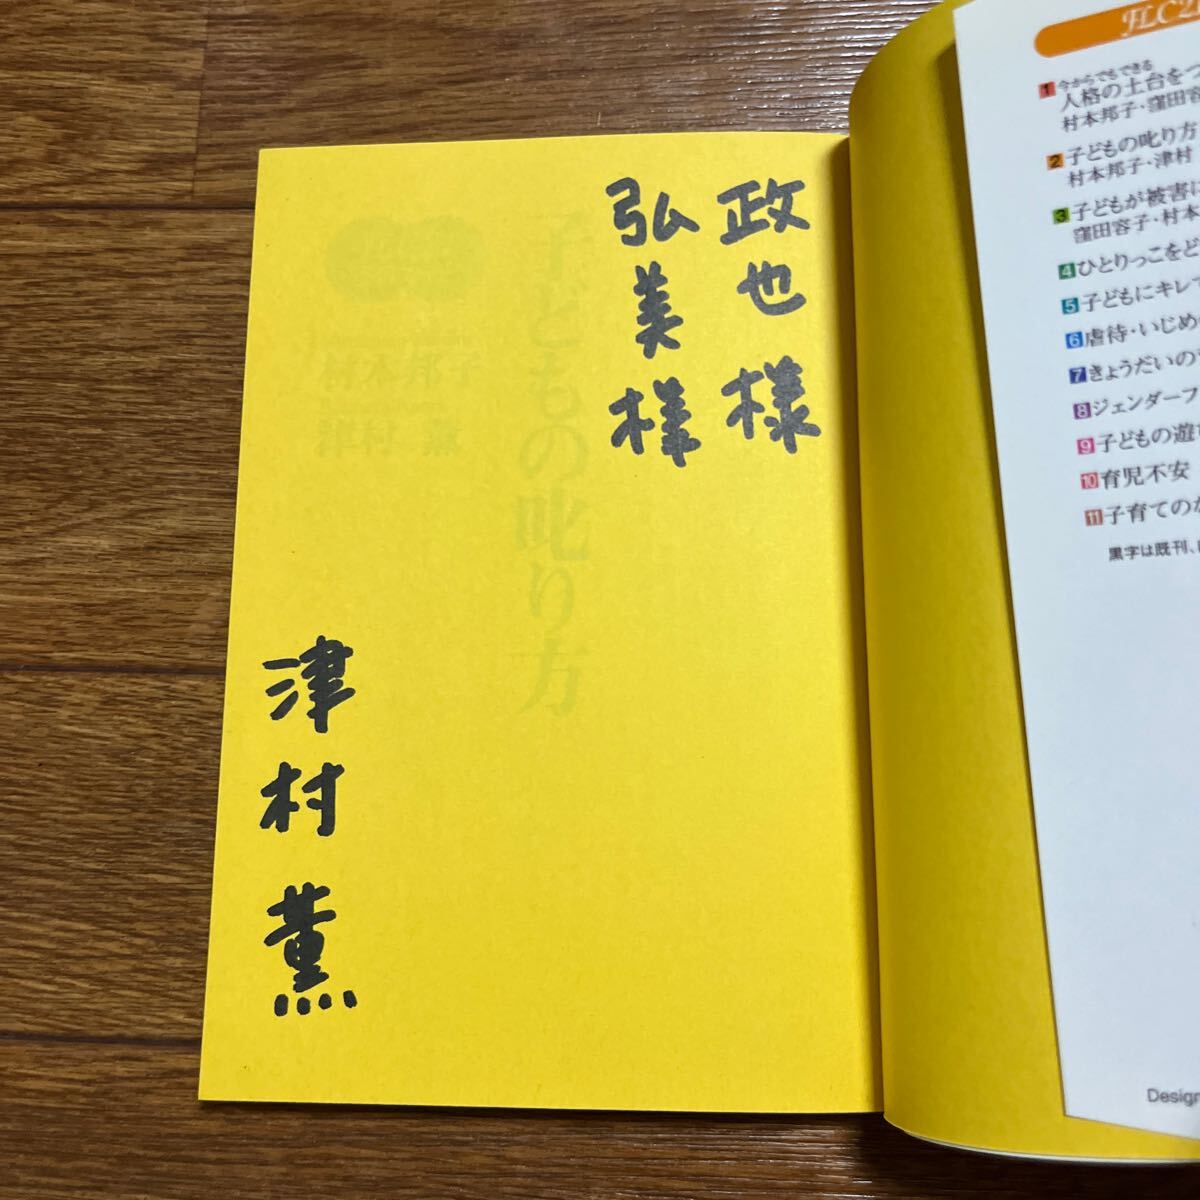 政也様
弘美様
津村薫
子どもの叱り方
村本邦子
津村 薫
FLC21
1 今からでもできる
人格の土台をつ
村本邦子・窪田容
2 子どもの叱り方
村本邦子・津村
3 子どもが被害に
窪田容子・村本
4 ひとりっこをど
5 子どもにキレて
6 虐待・いじめ
7 きょうだいの
8 ジェンダーフ
9 子どもの遊
10 育児不安
11 子育ての
黒字は既刊、
Design